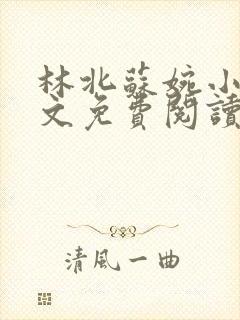 林北蘇婉小
文免費閱讀
清風一曲